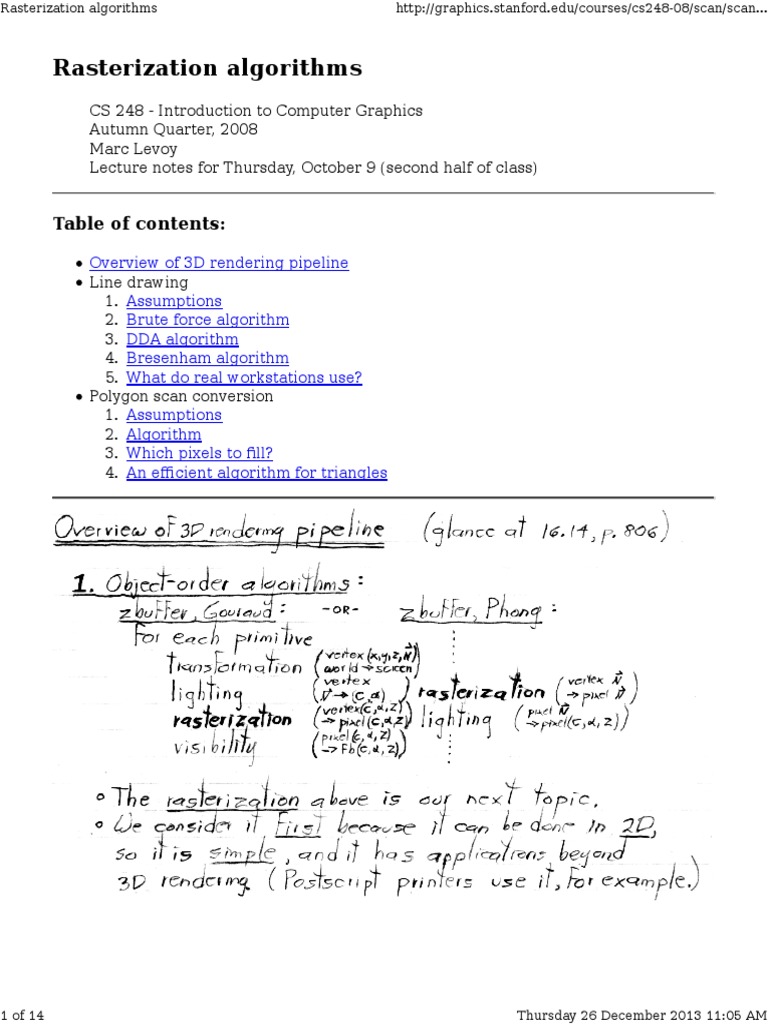 Rasterization algorithms http://graphics.stanford.edu/courses/cs248-08/scan/scan...
Rasterization algorithms
CS 248 - Introduction to Computer Graphics
Autumn Quarter, 2008
Marc Levoy
Lecture notes for Thursday, October 9 (second half of class)
Table of contents:
• Overview of 3D rendering pipeline
• Line drawing
1. Assumptions
2. Brute force algorithm
3. DDA algorithm
4. Bresenham algorithm
5. What do real workstations use?
• Polygon scan conversion
1. Assumptions
2. Algorithm
3. Which pixels to fill?
4. An efficient algorithm for triangles
Overview of 3D rendering pipeline (glance at 16.14, p. 806)
1. Object-order algorithms:
zbuffer, Gouraud: -OR- zbuffer, Phong:
For each primitive
transformation (vertex(x,y,z,N⃗) world → screen)
lighting (vertex N⃗ → (c,α)) rasterization (vertex N⃗ → pixel N⃗)
rasterization (vertex(c,α,z) → pixel(c,α,z)) lighting (pixel N⃗ → pixel(c,α,z))
visibility (pixel(c,α,z) → Fb(c,α,z))
o The rasterization above is our next topic.
o We consider it First because it can be done in 2D,
so it is simple, and it has applications beyond
3D rendering. (Postscript printers use it, for example.)
1 of 14 Thursday 26 December 2013 11:05 AM